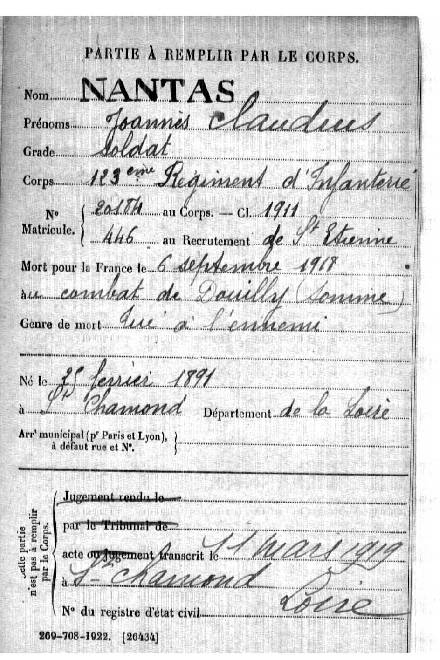 PARTIE À REMPLIR PAR LE CORPS.
Nom NANTAS
Prénoms Joannès Claudius
Grade Soldat
Corps 123eme Régiment d'Infanterie
N° Matricule. { 20184 au Corps. — Cl. 1911
446 au Recrutement de St Etienne
Mort pour la France le 6 septembre 1918
au combat de Douilly (Somme)
Genre de mort Tué à l'ennemi
Né le février 1891
à St Chamond Département de la Loire
Arrt municipal (pr Paris et Lyon), à défaut rue et N°. }
Cette partie n'est pas à remplir par le Corps.
Jugement rendu le
par le Tribunal de
acte ou jugement transcrit le 11 mars 1919
à St Chamond
Loire
N° du registre d'état civil
269-708-1922. [26434]